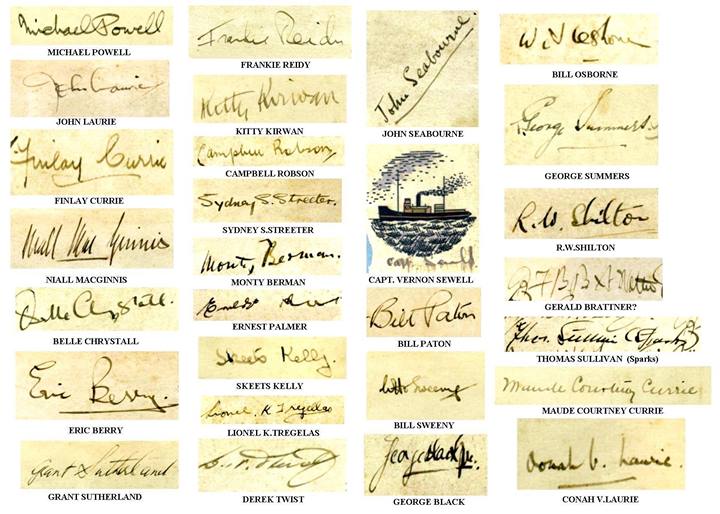 Michael Powell
MICHAEL POWELL
John Laurie
JOHN LAURIE
Finlay Currie
FINLAY CURRIE
Niall Mac Ginnis
NIALL MACGINNIS
Belle Chrystall.
BELLE CHRYSTALL
Eric Berry.
ERIC BERRY
Grant Sutherland
GRANT SUTHERLAND
Frankie Reidy
FRANKIE REIDY
Kitty Kirwan
KITTY KIRWAN
Campbell Robson
CAMPBELL ROBSON
Sydney S. Streeter.
SYDNEY S.STREETER
Monty Berman.
MONTY BERMAN
ERNEST PALMER
Skeets Kelly.
SKEETS KELLY
Lionel K Tregelas
LIONEL K.TREGELAS
DEREK TWIST
John Seabourne.
JOHN SEABOURNE
CAPT. VERNON SEWELL
Bill Paton
BILL PATON
Bill Sweeny
BILL SWEENY
George Black Jnr.
GEORGE BLACK
BILL OSBORNE
George Summers.
GEORGE SUMMERS
R.W. Shilton
R.W.SHILTON
GERALD BRATTNER?
Thos. Sullivan (Sparks)
THOMAS SULLIVAN (Sparks)
Maude Courtney Currie
MAUDE COURTNEY CURRIE
Oonah V. Laurie.
CONAH V.LAURIE